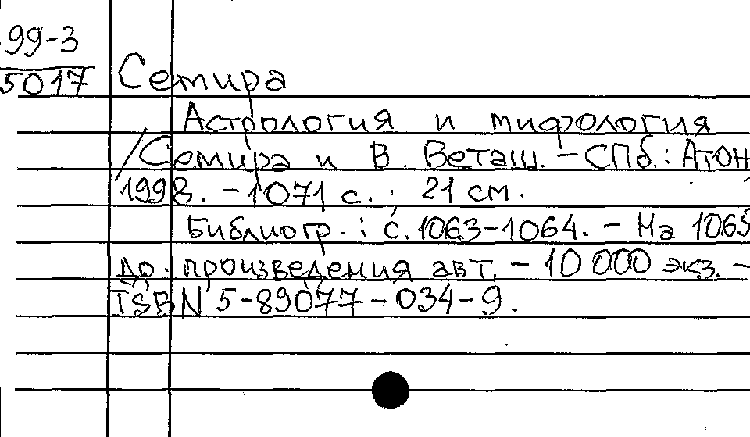 99-3
5017
Семира
Астрология и мифология
/Семира и В. Веташ. - СПб.: Атон
1998. - 1071 с.; 21 см.
Библиогр.: с. 1063-1064. - На 1065
др. произведения авт. - 10 000 экз. -
ISBN 5-89077-034-9.